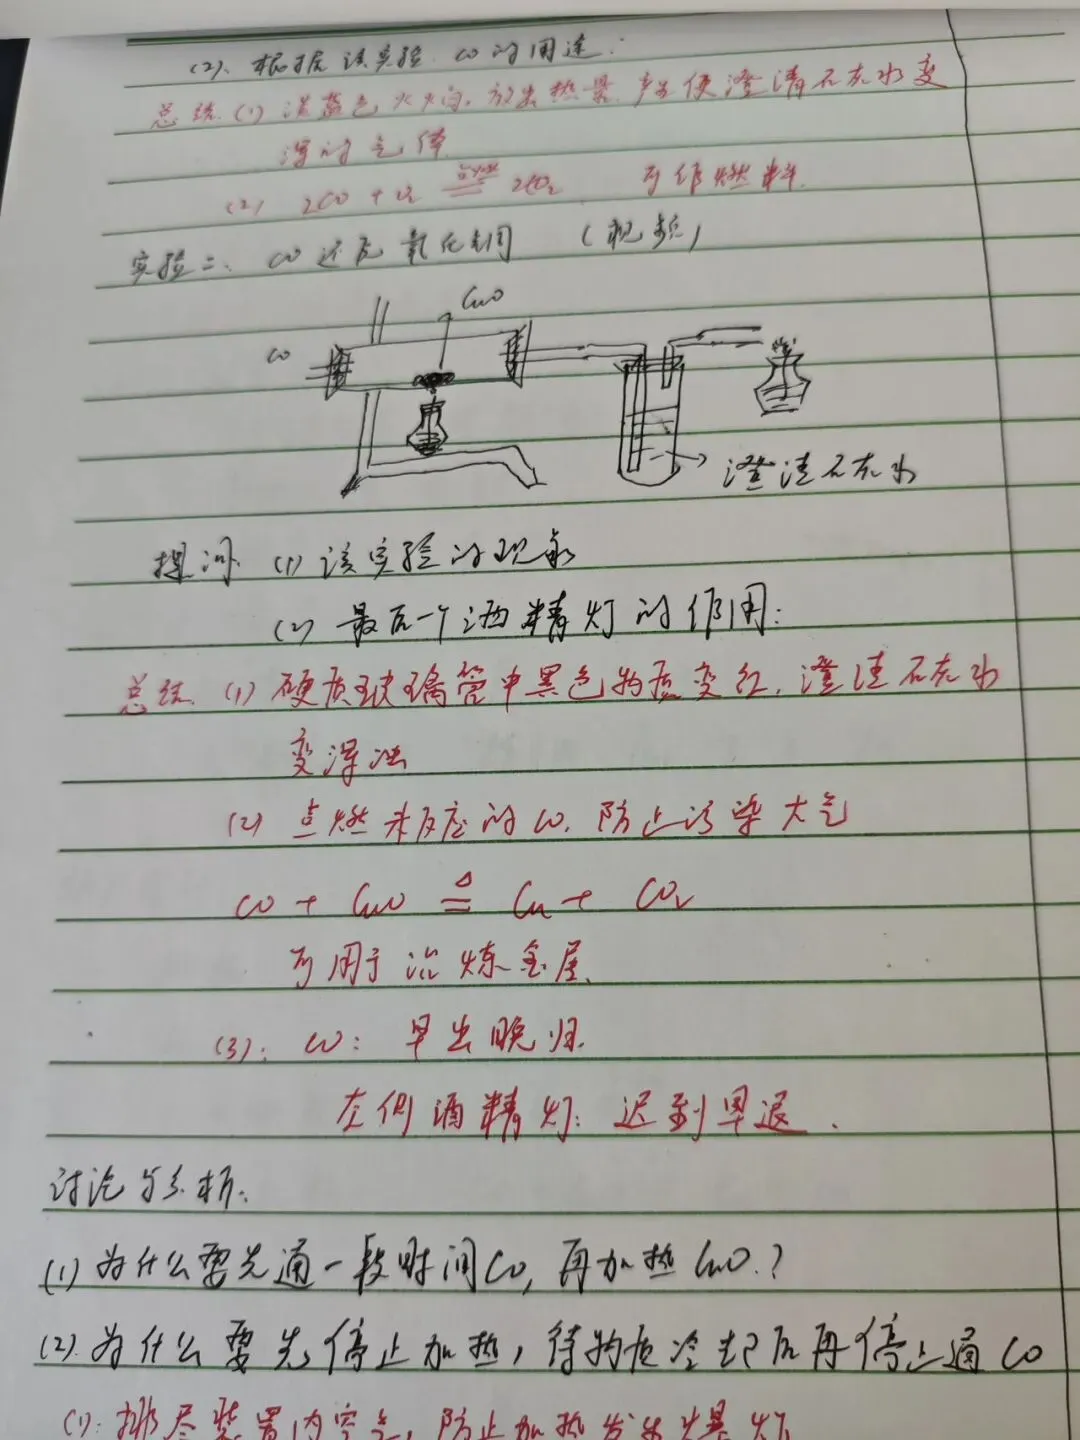 (2). 根据该实验 CO的用途:
总结.(1) 淡蓝色火焰, 放出热量 产生使澄清石灰水变
浑的气体
(2) 2CO + O₂ 点燃══ 2CO₂ 可作燃料.
实验二、CO还原氧化铜 (视频)
CuO
CO
澄清石灰水
提问. (1) 该实验的现象
(2) 最后一个酒精灯的作用:
总结. (1) 硬质玻璃管中黑色物质变红, 澄清石灰水
变浑浊
(2) 点燃未反应的CO, 防止污染大气
CO + CuO △══ Cu + CO₂
可用于冶炼金属.
(3): CO: 早出晚归.
左侧酒精灯: 迟到早退.
讨论与分析:
(1) 为什么要先通一段时间CO, 再加热CuO.?
(2). 为什么要先停止加热, 待物质冷却后再停止通CO
(1): 排尽装置内空气, 防止加热发生爆炸